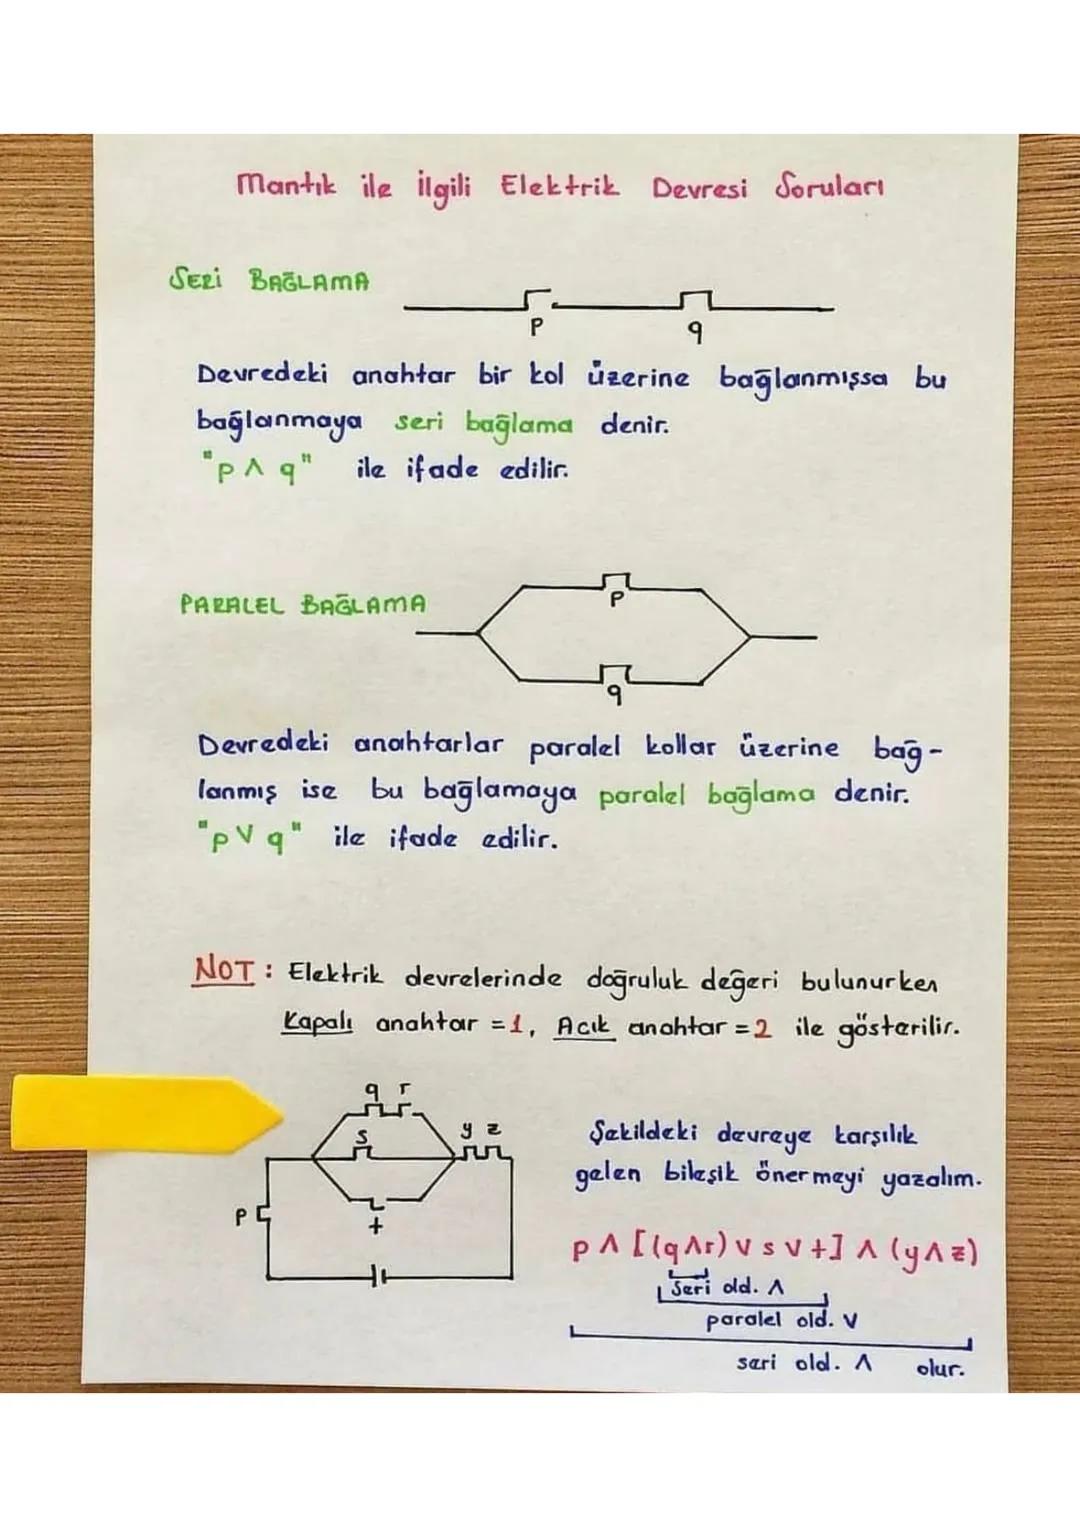 Mantık ile ilgili Elektrik Devresi Soruları
SERİ BAĞLAMA
p
q
Devredeki anahtar bir kol üzerine bağlanmışsa bu
bağlanmaya seri bağlama denir.
"p ∧ q" ile ifade edilir.
PARALEL BAĞLAMA
p
q
Devredeki anahtarlar paralel kollar üzerine bağ-
lanmış ise bu bağlamaya paralel bağlama denir.
"p ∨ q" ile ifade edilir.
NOT : Elektrik devrelerinde doğruluk değeri bulunurken
Kapalı anahtar = 1, Acık anahtar = 2 ile gösterilir.
q r
s
y z
p
t
Şekildeki devreye karşılık
gelen bileşik önermeyi yazalım.
p ∧ [(q∧r) ∨ s ∨ t] ∧ (y∧z)
Seri old. ∧
paralel old. ∨
seri old. ∧ olur.